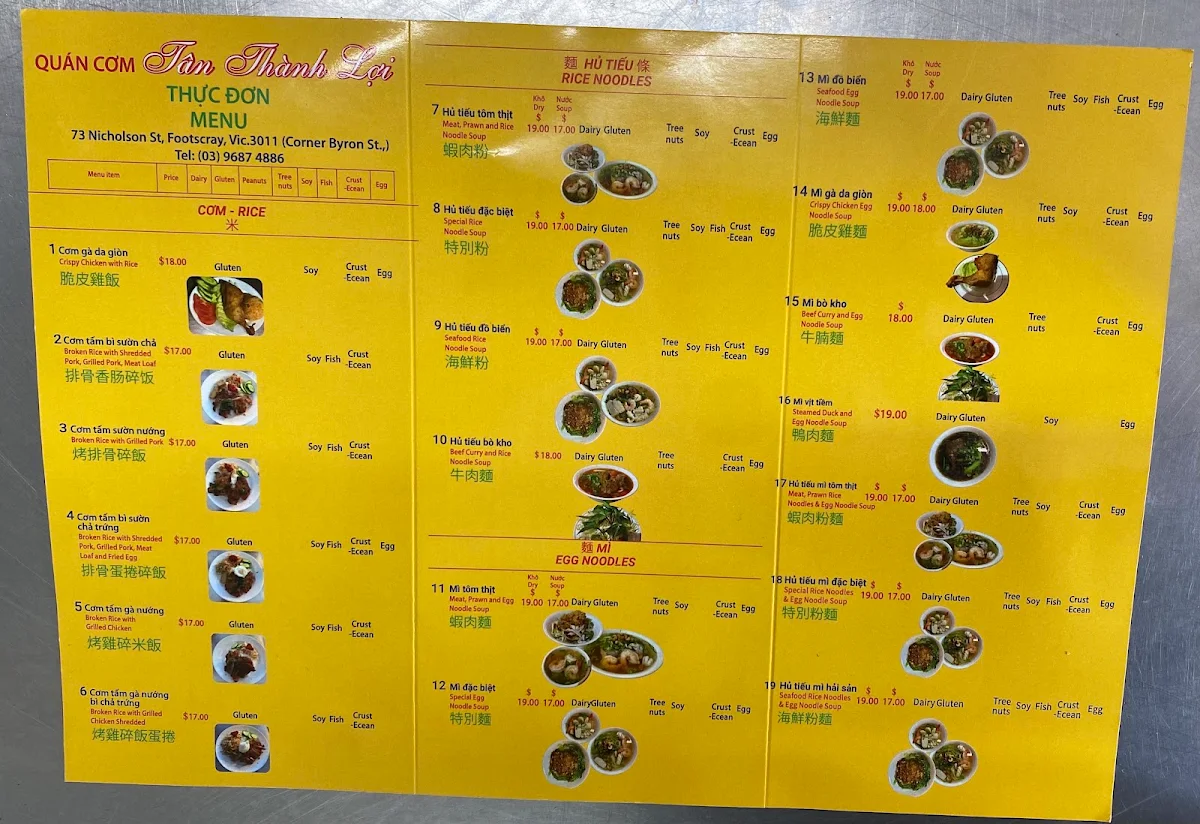 QUÁN CƠM Tân Thành Lợi
THỰC ĐƠN
MENU
73 Nicholson St, Footscray, Vic.3011 (Corner Byron St.,)
Tel: (03) 9687 4886
Menu item Price Dairy Gluten Peanuts Tree nuts Soy Fish Crust -Ecean Egg
CƠM - RICE
米
1 Cơm gà da giòn
Crispy Chicken with Rice $18.00 Gluten Soy Crust -Ecean Egg
脆皮雞飯
2 Cơm tấm bì sườn chả
Broken Rice with Shredded $17.00 Gluten Soy Fish Crust -Ecean
Pork, Grilled Pork, Meat Loaf
排骨香肠碎饭
3 Cơm tấm sườn nướng
Broken Rice with Grilled Pork $17.00 Gluten Soy Fish Crust -Ecean
烤排骨碎飯
4 Cơm tấm bì sườn
chả trứng
Broken Rice with Shredded $17.00 Gluten Soy Fish Crust -Ecean Egg
Pork, Grilled Pork, Meat
Loaf and Fried Egg
排骨蛋捲碎飯
5 Cơm tấm gà nướng
Broken Rice with $17.00 Gluten Soy Fish Crust -Ecean
Grilled Chicken
烤雞碎米飯
6 Cơm tấm gà nướng
bì chả trứng
Broken Rice with Grilled $17.00 Gluten Soy Fish Crust -Ecean
Chicken Shredded
烤雞碎飯蛋捲
麵 HỦ TIẾU 條
RICE NOODLES
Khô Nước
Dry Soup
7 Hủ tiếu tôm thịt $ $
Meat, Prawn and Rice 19.00 17.00 Dairy Gluten Tree nuts Soy Crust -Ecean Egg
Noodle Soup
蝦肉粉
8 Hủ tiếu đặc biệt $ $
Special Rice 19.00 17.00 Dairy Gluten Tree nuts Soy Fish Crust -Ecean Egg
Noodle Soup
特別粉
9 Hủ tiếu đồ biển $ $
Seafood Rice 19.00 17.00 Dairy Gluten Tree nuts Soy Fish Crust -Ecean Egg
Noodle Soup
海鮮粉
10 Hủ tiếu bò kho
Beef Curry and Rice $18.00 Dairy Gluten Tree nuts Crust -Ecean Egg
Noodle Soup
牛肉麵
麵 MÌ
EGG NOODLES
Khô Nước
Dry Soup
11 Mì tôm thịt $ $
Meat, Prawn and Egg 19.00 17.00 Dairy Gluten Tree nuts Soy Crust -Ecean Egg
Noodle Soup
蝦肉麵
12 Mì đặc biệt $ $
Special Egg 19.00 17.00 Dairy Gluten Tree nuts Soy Crust -Ecean Egg
Noodle Soup
特別麵
Khô Nước
Dry Soup
13 Mì đồ biển $ $
Seafood Egg 19.00 17.00 Dairy Gluten Tree nuts Soy Fish Crust -Ecean Egg
Noodle Soup
海鮮麵
14 Mì gà da giòn $ $
Crispy Chicken Egg 19.00 18.00 Dairy Gluten Tree nuts Soy Crust -Ecean Egg
Noodle Soup
脆皮雞麵
15 Mì bò kho $
Beef Curry and Egg 18.00 Dairy Gluten Tree nuts Crust -Ecean Egg
Noodle Soup
牛腩麵
16 Mì vịt tiềm
Steamed Duck and $19.00 Dairy Gluten Soy Egg
Egg Noodle Soup
鴨肉麵
17 Hủ tiếu mì tôm thịt $ $
Meat, Prawn Rice 19.00 17.00 Dairy Gluten Tree nuts Soy Crust -Ecean Egg
Noodles & Egg Noodle Soup
蝦肉粉麵
18 Hủ tiếu mì đặc biệt $ $
Special Rice Noodles 19.00 17.00 Dairy Gluten Tree nuts Soy Fish Crust -Ecean Egg
& Egg Noodle Soup
特別粉麵
19 Hủ tiếu mì hải sản $ $
Seafood Rice Noodles 19.00 17.00 Dairy Gluten Tree nuts Soy Fish Crust -Ecean Egg
& Egg Noodle Soup
海鮮粉麵